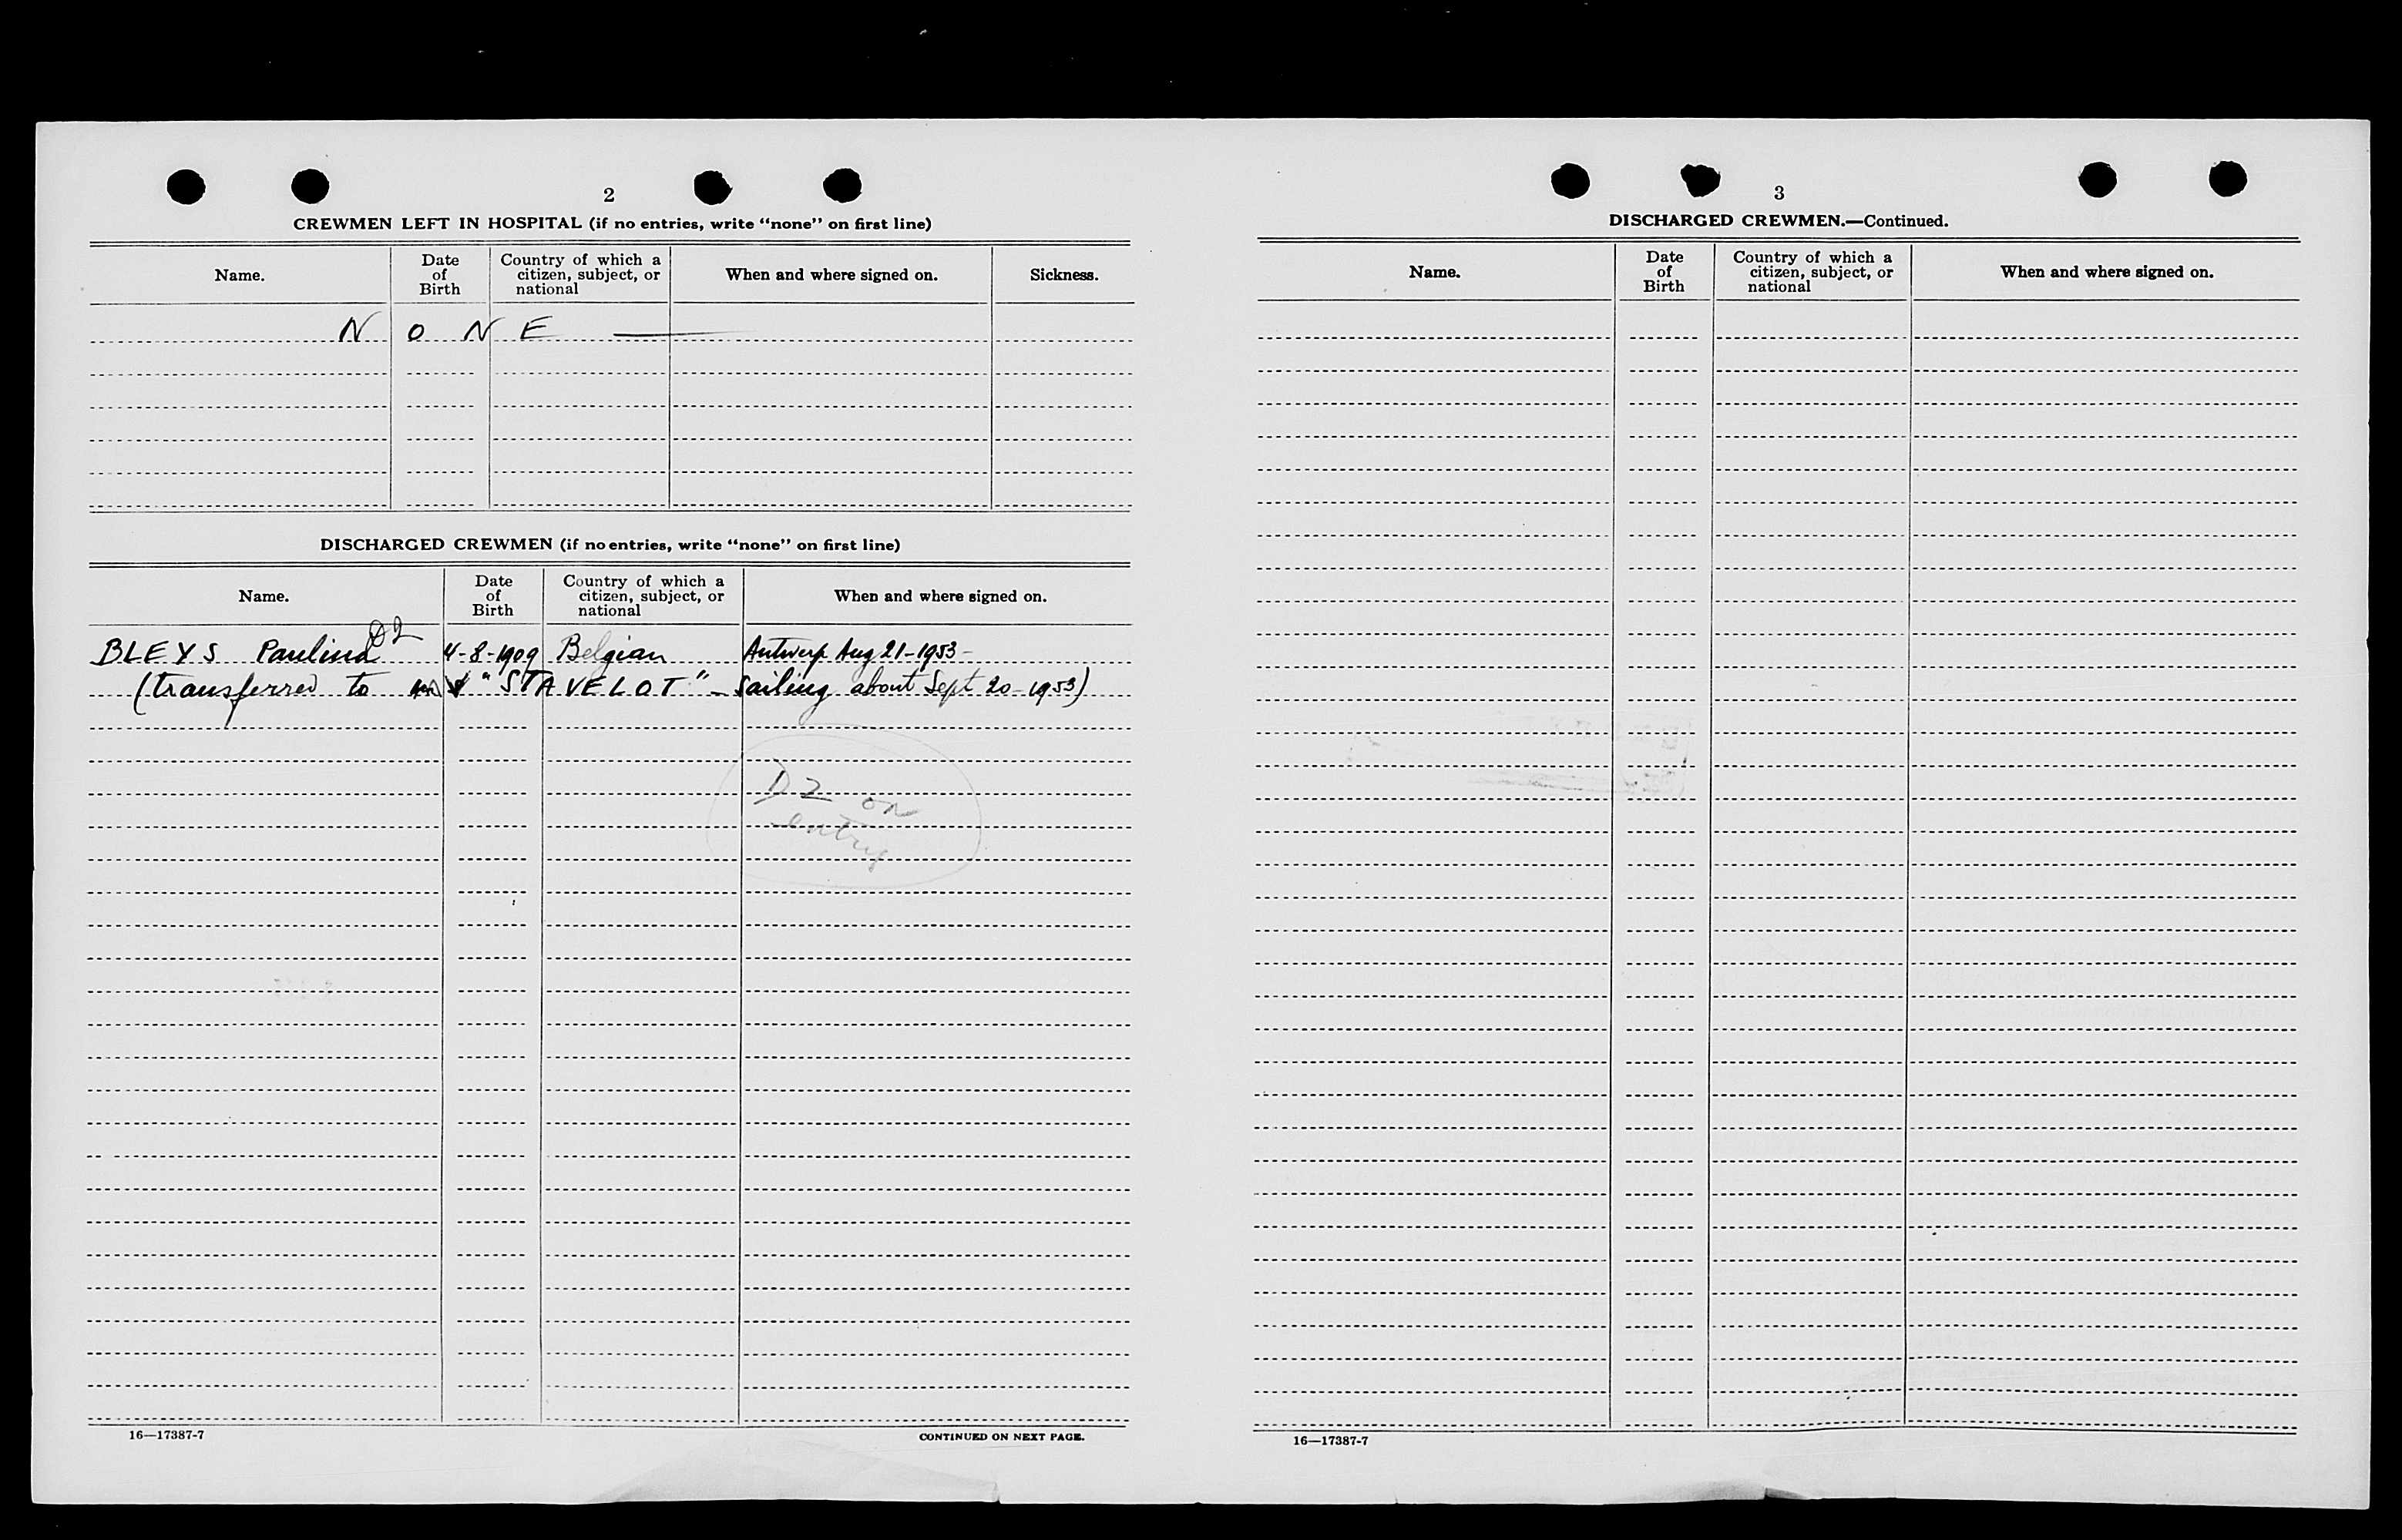 2
CREWMEN LEFT IN HOSPITAL (if no entries, write "none" on first line)
Name.
Date of Birth
Country of which a citizen, subject, or national
When and where signed on.
Sickness.
N O N E —
DISCHARGED CREWMEN (if no entries, write "none" on first line)
Name.
Date of Birth
Country of which a citizen, subject, or national
When and where signed on.
D2
BLEYS Paulina 4-8-1909 Belgian Antwerp Aug 21-1953-
(transferred to "STAVELOT" - Sailing about Sept 20-1953)
D2 on
entry
16—17387-7
CONTINUED ON NEXT PAGE.
3
DISCHARGED CREWMEN.—Continued.
Name.
Date of Birth
Country of which a citizen, subject, or national
When and where signed on.
16—17387-7